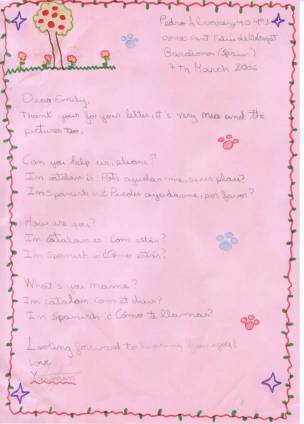 Pedro
Barcelona (Spain)
7th March 2006
Dear Emily,
Thank you for your letter, it's very nice and the
pictures too.
Can you help us, please?
In catalan is: Pots ajudar-me, si us plau?
In Spanish is: ¿Puedes ayudarme, por favor?
How are you?
In Catalan is: Com estàs?
In Spanish is: ¿Cómo estás?
What's you namme?
In catalan: Com et dius?
In Spanish: ¿Cómo te llamas?
Looting forward to hearing you
love,